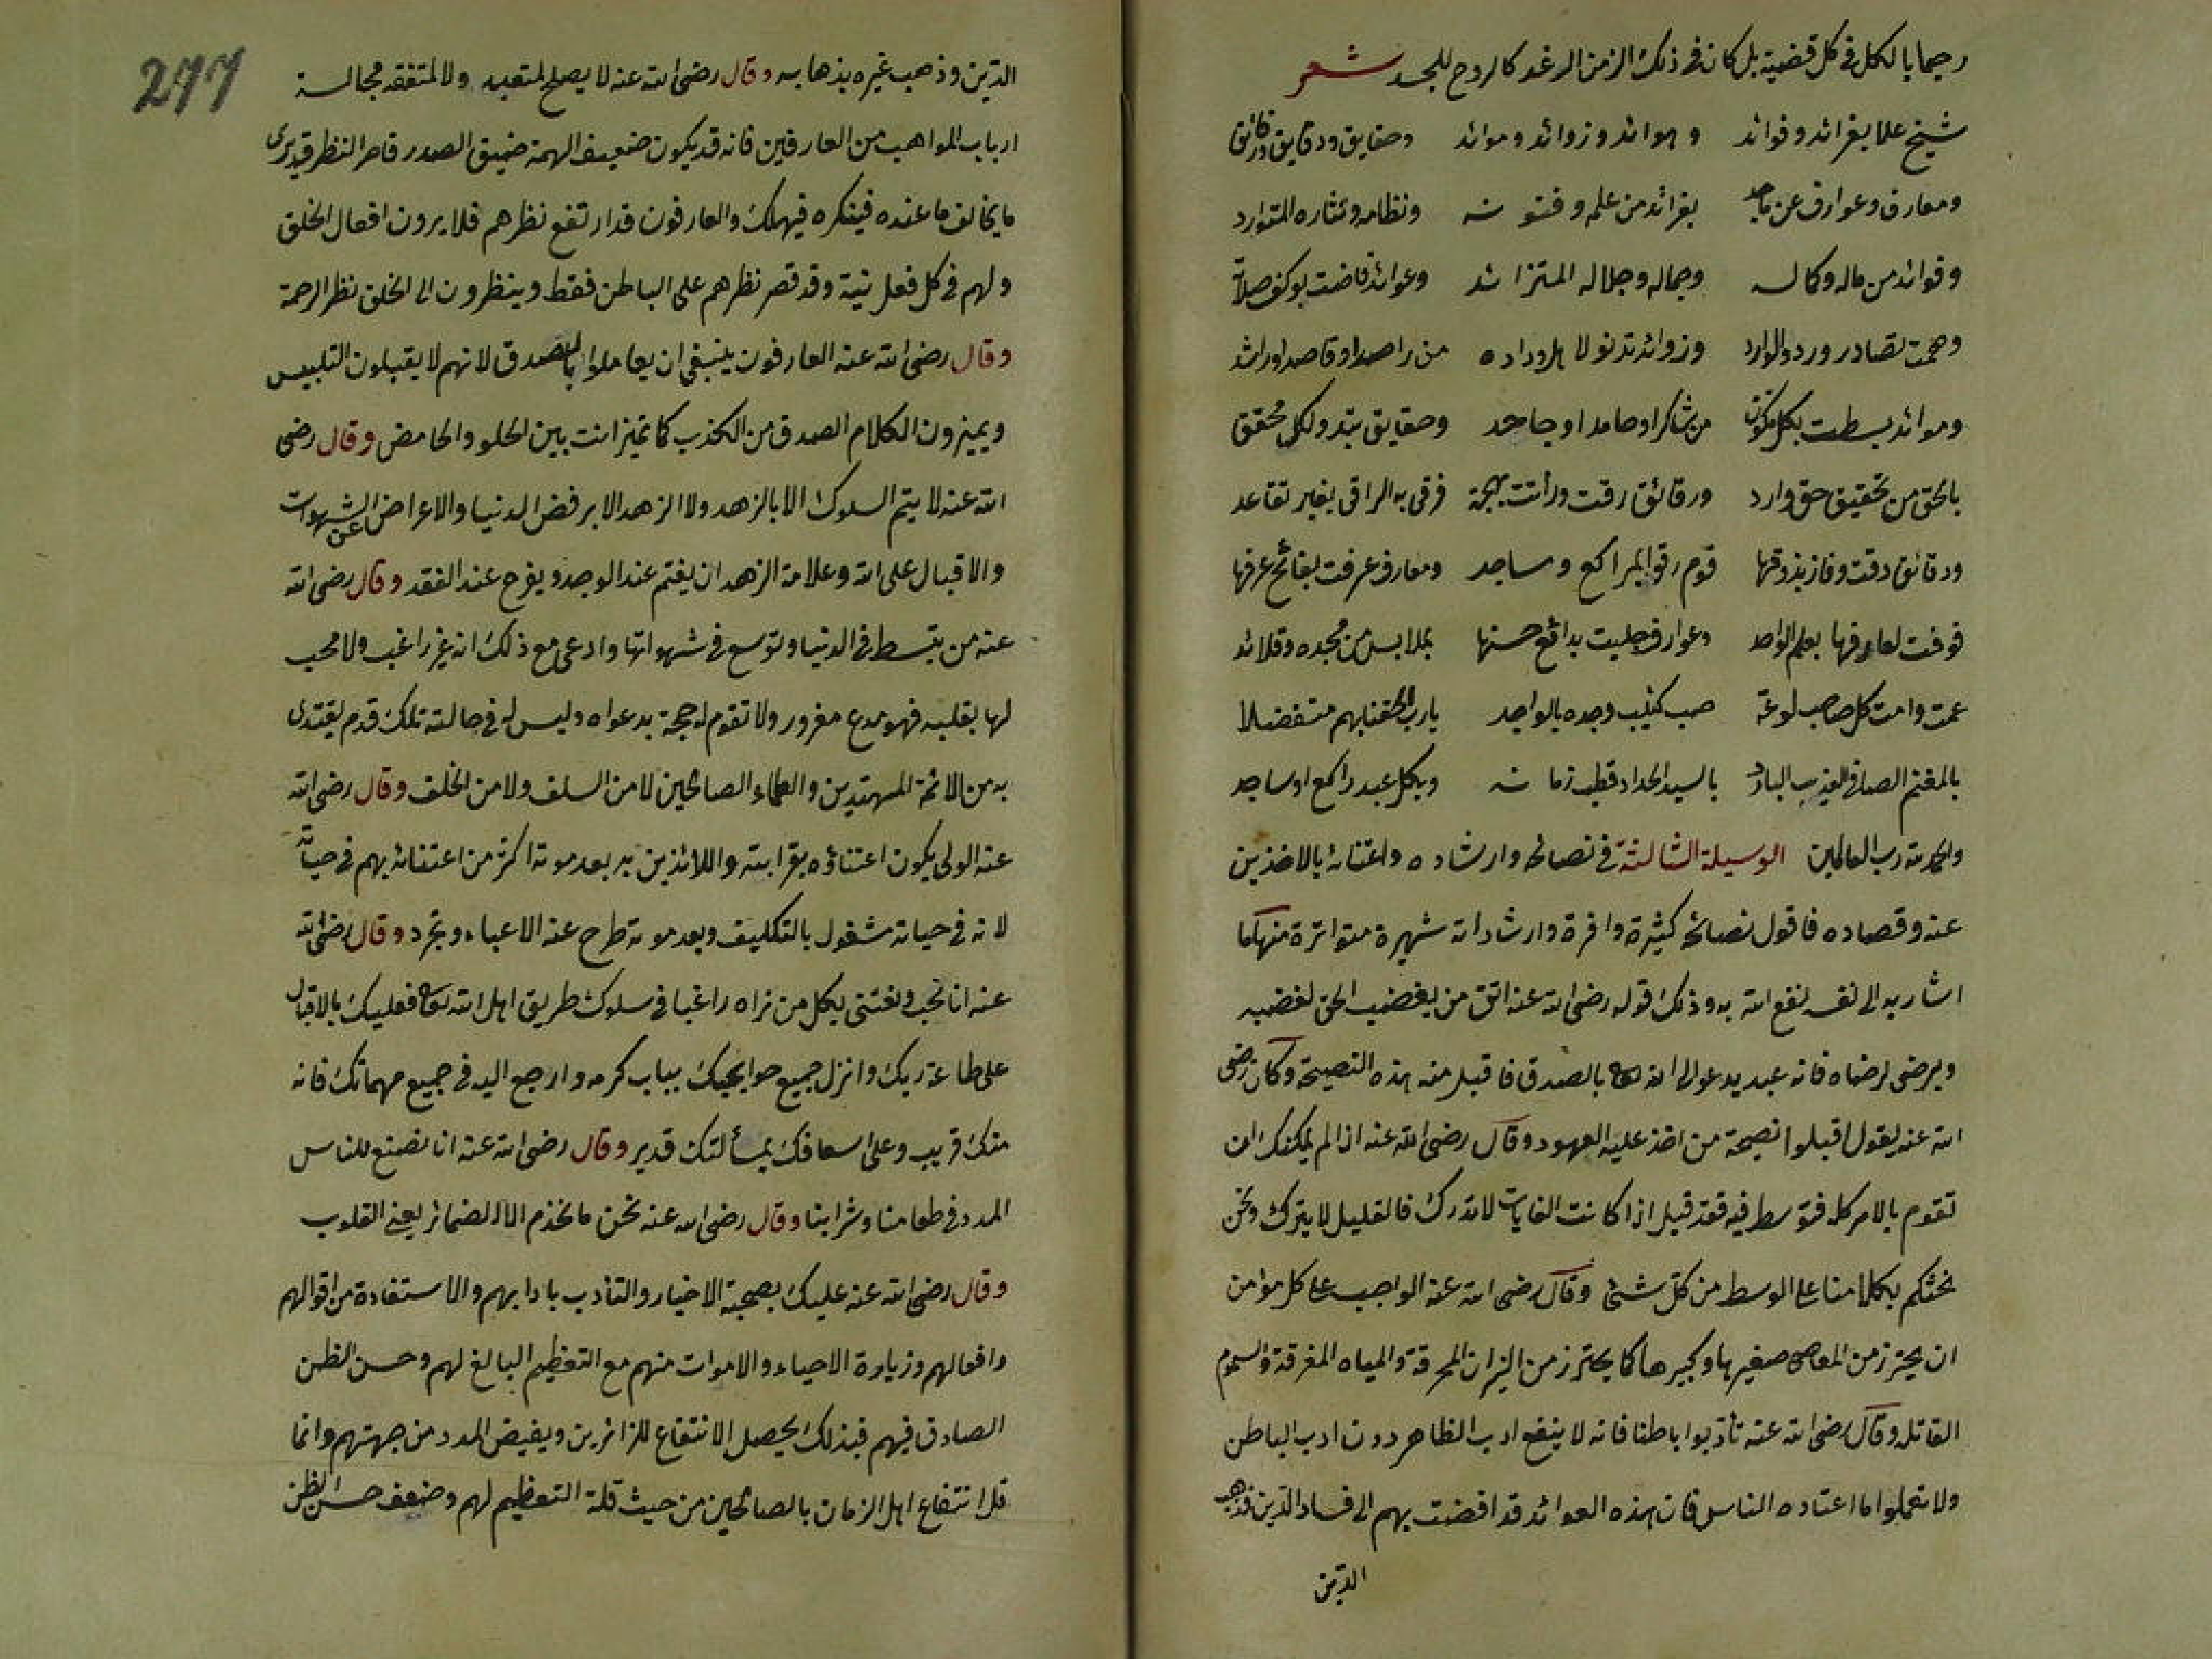 رحيما بالكل في كل قضية بل كان في ذلك الزمن الرغد كالروح للجسد شعر
شيخ علا بفرائد وفوائد وعوائد وزوائد وموائد وحقايق ودقايق ورقائق
ومعارف وعوارف عن ماجد بفرائد من علمه وفنونه ونظامه ونثاره المتوارد
وفوائد من حاله وكماله وجماله وجلاله المتزائد وعوائد فاضت بوكف صلاته
وهمت تصادر ورد والوارد وزوائد تدنو لاهل وداده من راصد او قاصد او راشد
وموائد بسطت بكل من شاكر او حامد او جاحد وحقايق تبدو لكل محقق
بالحق من تحقيق حق وارد ورقائق رقت ورأت بهجة فرقى به الراقي بغير تقاعد
ودقائق دقت وفاز بذوقها قوم رقوا لمراكع ومساجد ومعارف عرفت بفائح عرفها
فوفت لعارفها بعلم الواحد وعوارف جليت بدائع حسنها بملابس من مجده وقلائد
عمت وامت كل صاحب لوعة صب كئيب وجده بالواجد يارب الحقنا بهم متفضلا
بالمغنم الصافي العذب البارد بالسيد الحداد قطب زمانه وبكل عبد راكع او ساجد
والحمد لله رب العالمين الوسيلة الثالثة في نصائحه وارشاده واعتنائه بالاخذين
عنه وقصاده فاقول نصائحه كثيرة وافرة وارشاداته شهيرة متواترة منها ما
اشار به الى نفسه نفع الله به وذلك قوله رضي الله عنه اتق من يغضب الحق لغضبه
ويرضى لرضاه فانه عبد يدعو الى الله تعالى بالصدق فاقبل منه هذه النصيحة وكان رضي
الله عنه يقول اقبلوا نصيحة من اخذ عليه العهود وقال رضي الله عنه اذا لم يمكنك ان
تقوم بالامر كله فتوسط فيه فقد قيل اذا كانت الغايات لا تدرك فالقليل لا يترك ونحن
نحثكم بكلامنا على الوسط من كل شئ وقال رضي الله عنه الواجب على كل مؤمن
ان يحترز من المعاصي صغيرها وكبيرها كما يحترز من النيران المحرقة والمياه المغرقة والسموم
القاتله وقال رضي الله عنه تأدبوا باطنا فانه لا ينفع ادب الظاهر دون ادب الباطن
ولا تعملوا ما اعتاده الناس فان هذه العوائد قد افضت بهم الى فساد الدين فذهب
الدين
277
الدين وذهب غيره بذهابه وقال رضي الله عنه لا يصلح لمتعبد ولا لمتفقه مجالسة
ارباب المواهب من العارفين فانه قد يكون ضعيف الهمة ضيق الصدر قاصر النظر قد يرى
ما يخالف ما عنده فينكره فيهلك والعارفون قد ارتفع نظرهم فلا يرون افعال الخلق
ولهم في كل فعل نية وقد قصر نظرهم على الباطن فقط وينظرون الى الخلق نظر الرحمة
وقال رضي الله عنه العارفون ينبغي ان يعاملوا بالصدق لانهم لا يقبلون التلبيس
ويميزون الكلام الصدق من الكذب كما تميز انت بين الحلو والحامض وقال رضي
الله عنه لا يتم السلوك الا بالزهد ولا الزهد الا برفض الدنيا والاعراض عن الشهوات
والاقبال على الله وعلامة الزهد ان يغتم عند الوجد ويفرح عند الفقد وقال رضي الله
عنه من تبسط في الدنيا وتوسع في شهواتها وادعى مع ذلك انه غير راغب ولا محب
لها بقلبه فهو مدع مغرور ولا تقوم له حجة بدعواه وليس له في حالته تلك قدم يقتدى
به من الائمة المهتدين والعلماء الصالحين لا من السلف ولا من الخلف وقال رضي الله
عنه الولي يكون اعتناؤه بقرابته واللائذين به بعد موته اكثر من اعتنائه بهم في حياته
لانه في حياته مشغول بالتكليف وبعد موته طرح عنه الاعباء وتجرد وقال رضي الله
عنه انا نحب ونعتني بكل من نراه راغبا في سلوك طريق اهل الله تعالى فعليك بالاقبال
على طاعة ربك وانزل جميع حوايجك بباب كرمه وارجع اليه في جميع مهماتك فانه
منك قريب وعلى اسعافك بمسألتك قدير وقال رضي الله عنه انا نصنع للناس
المدد في طعامنا وشرابنا وقال رضي الله عنه نحن ما نخدم الا الضمائر يعني القلوب
وقال رضي الله عنه عليك بصحبة الاخيار والتأدب بادابهم والاستفادة من اقوالهم
وافعالهم وزيارة الاحياء والاموات منهم مع التعظيم البالغ لهم وحسن الظن
الصادق فيهم فبذلك يحصل الانتفاع للزائرين ويفيض المدد من جهتهم وانما
قل انتفاع اهل الزمان بالصالحين من حيث قلة التعظيم لهم وضعف حسن الظن